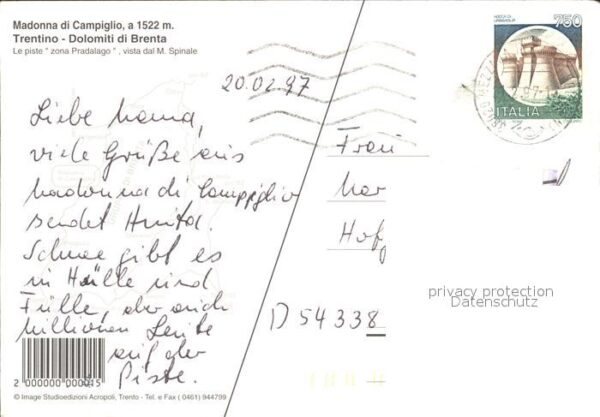 Madonna di Campiglio, a 1522 m.
Trentino - Dolomiti di Brenta
Le piste " zona Pradalago " , vista dal M. Spinale
750
ITALIA
20.02.97
Liebe Mama,
viele Grüße aus
Madonna di Campiglio
sendet
Schnee gibt es
in Hülle und
Fülle, aber auch
Millionen Leute
auf der
Piste.
Frau
Mar
Hof
D 54338
privacy protection
Datenschutz
2 000000 000015
© Image Studioedizioni Acropoli, Trento - Tel. e Fax ( 0461) 944799